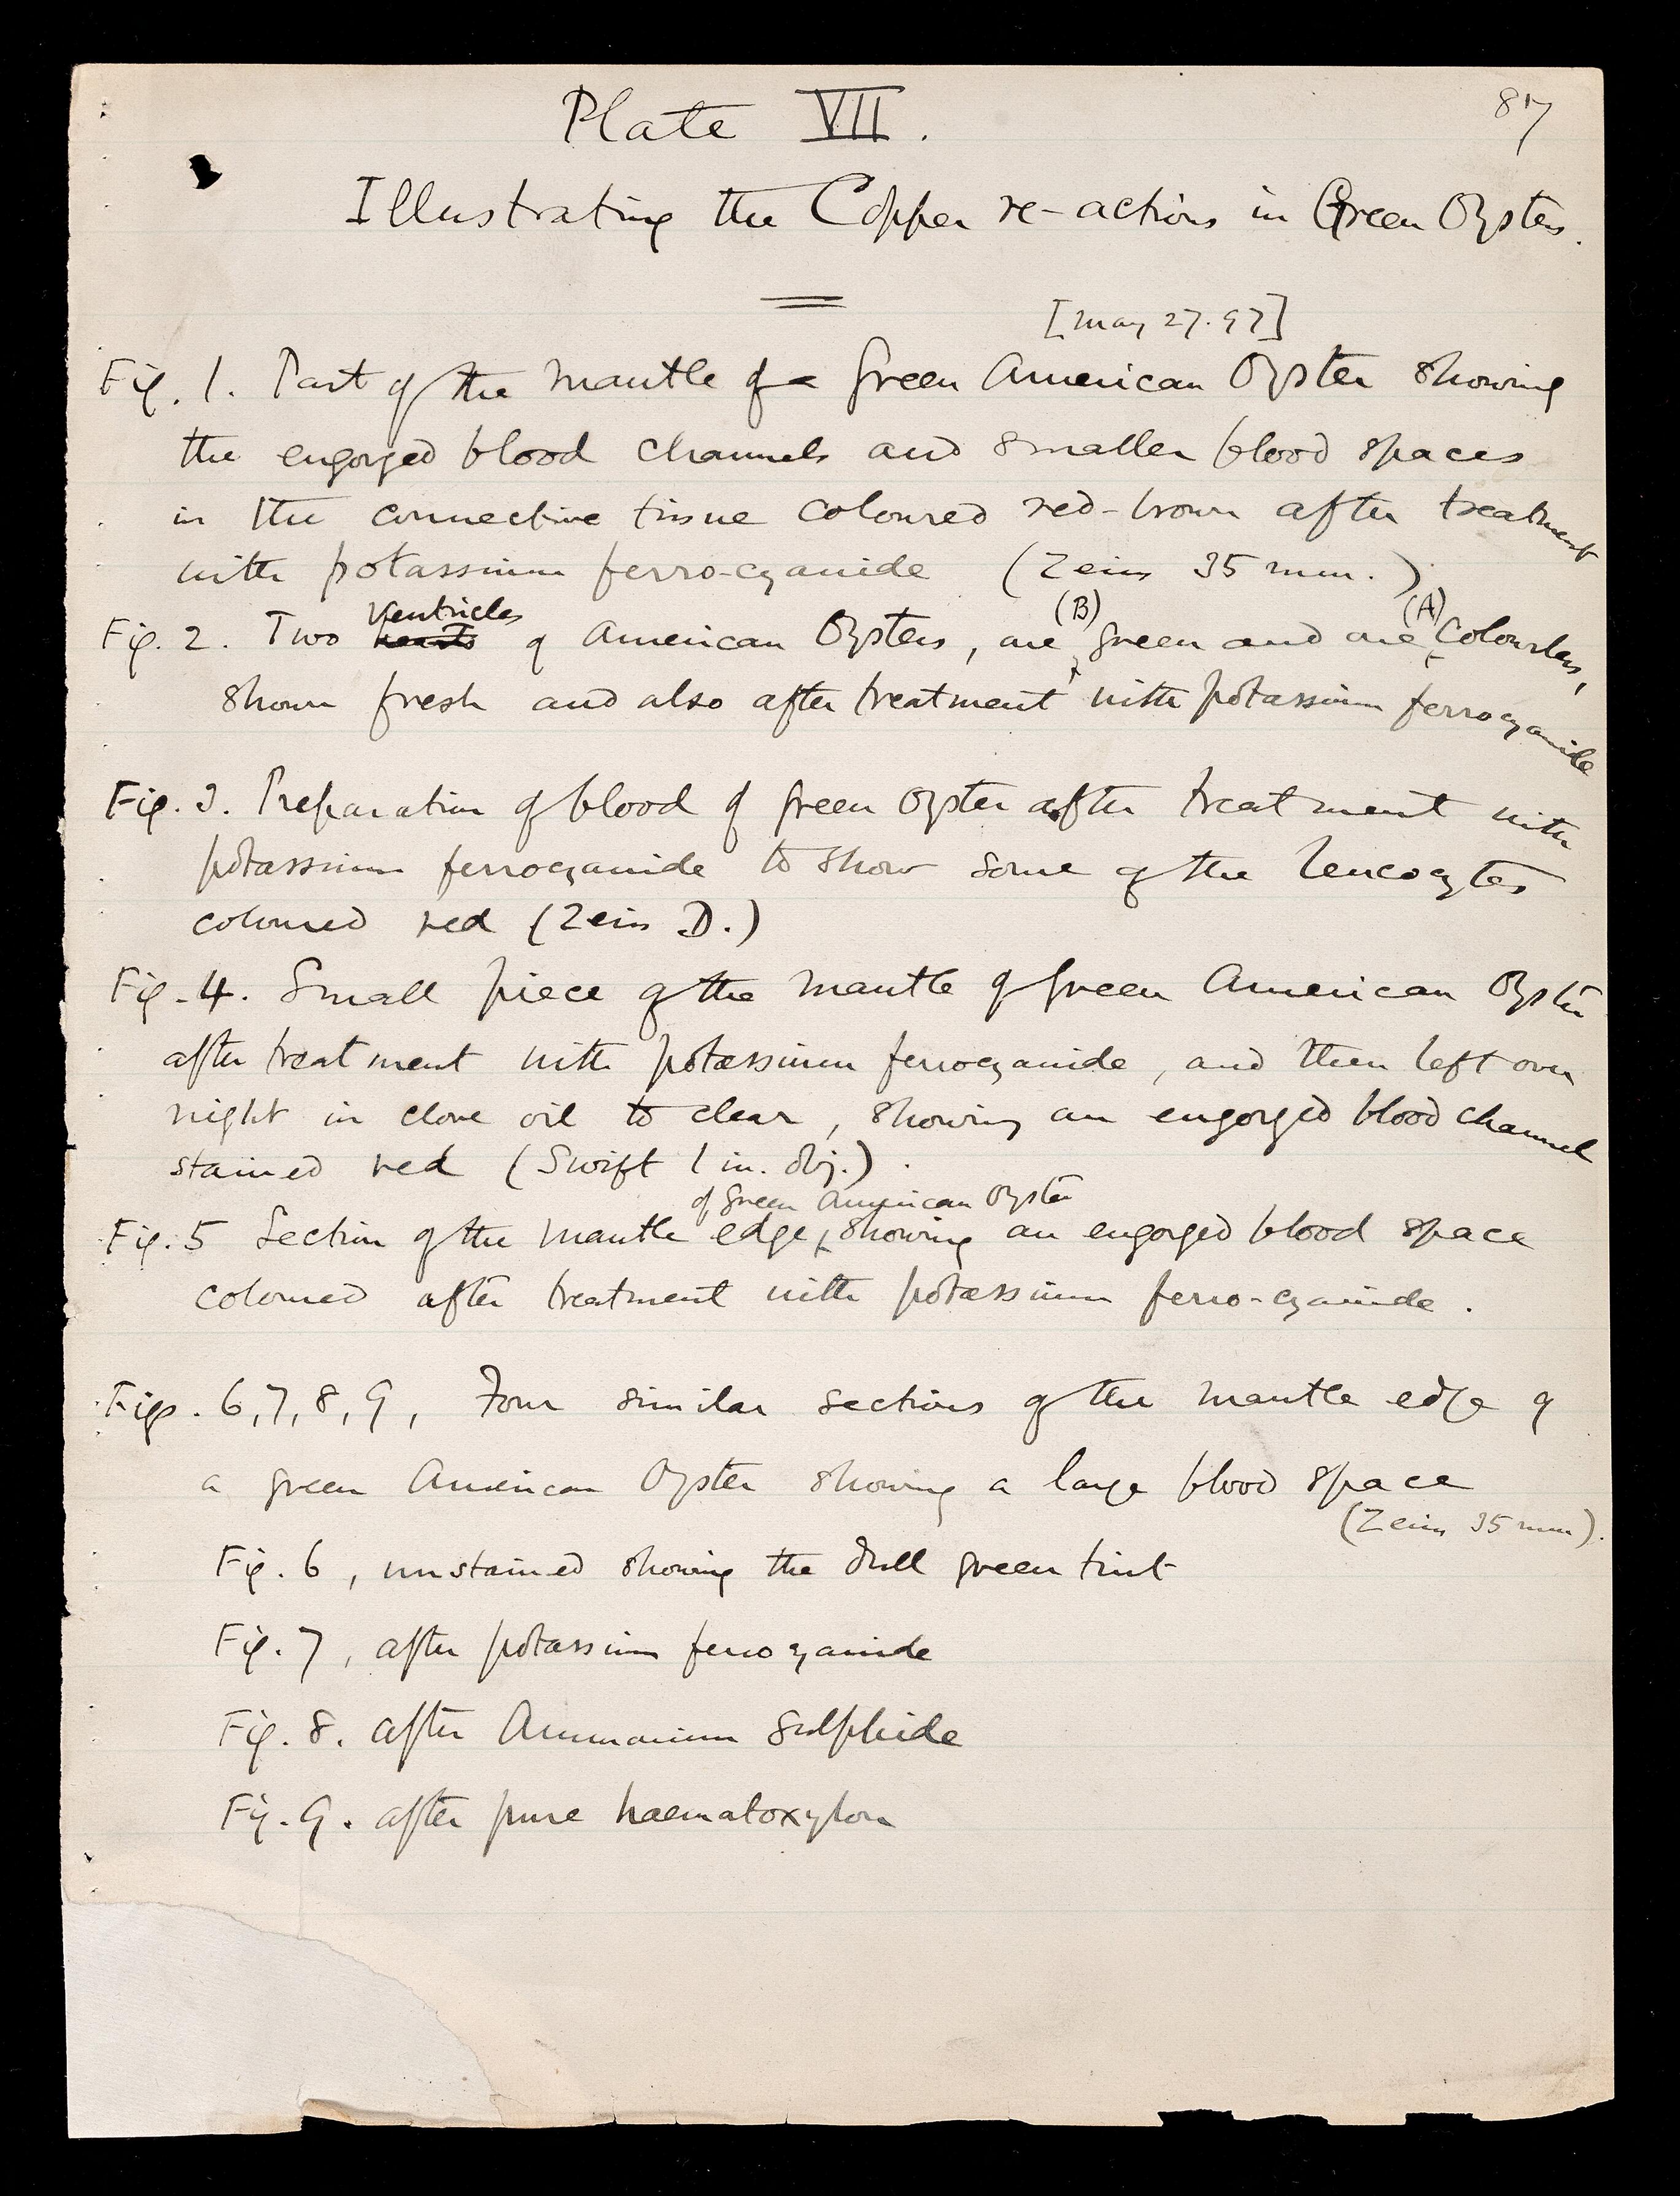 Plate VII.
87
Illustrating the Copper re-actions in Green Oysters.
[May 27. 97]
Fig. 1. Part of the mantle of a green American Oyster showing
the engorged blood channels and smaller blood spaces
in the connective tissue coloured red-brown after treatment
with potassium ferro-cyanide (Zeiss 35 mm.)
Ventricles
(B)
(A)
Fig. 2. Two hearts of American Oysters, one green and one colourless,
shown fresh and also after treatment with potassium ferrocyanide
Fig. 3. Preparation of blood of green oyster after treatment with
potassium ferrocyanide to show some of the leucocytes
coloured red (Zeiss D.)
Fig. 4. Small piece of the mantle of green American Oyster
after treatment with potassium ferrocyanide, and then left over
night in clove oil to clear, showing an engorged blood channel
stained red (Swift 1 in. obj.).
of green American Oyster
Fig. 5 Section of the mantle edge, showing an engorged blood space
coloured after treatment with potassium ferro-cyanide.
Figs. 6, 7, 8, 9, Four similar sections of the mantle edge of
a green American Oyster showing a large blood space
(Zeiss 35 mm).
Fig. 6, unstained showing the dull green tint
Fig. 7, after potassium ferrocyanide
Fig. 8. after Ammonium sulphide
Fig. 9. after pure haematoxylon